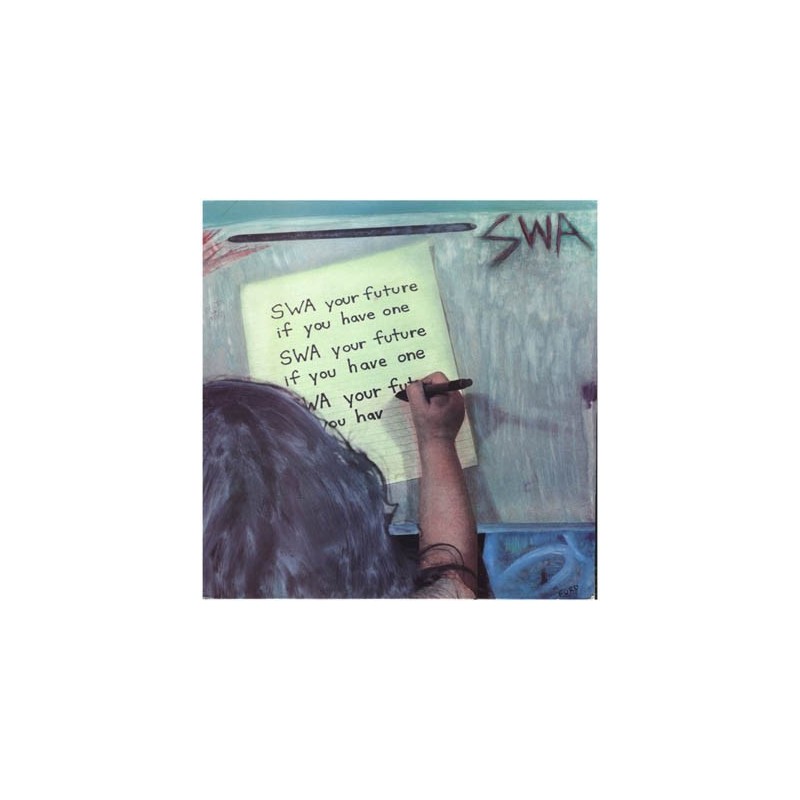 SWA
SWA your future
if you have one
SWA your future
if you have one
WA your fut
you hav